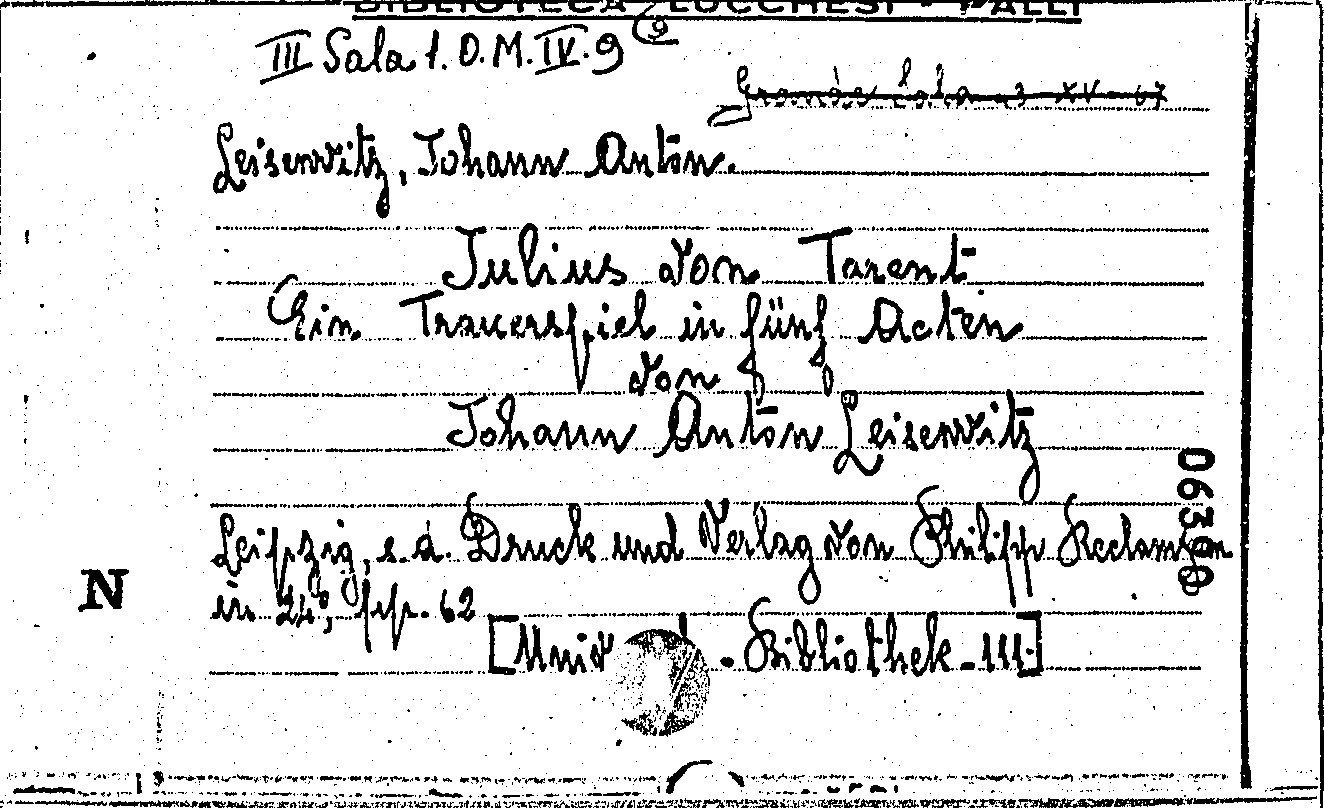 BIBLIOTECA LUCCHESI - PALLI
III Sala 1. O. M. IV. 9 (9
Grande Sala 23 XV 67
Leisenwitz, Johann Anton.
Julius von Tarent
Ein Trauerspiel in fünf Acten
von
Johann Anton Leisenwitz
Leipzig, s. a. Druck und Verlag von Philipp Reclam jun
in 24°, pp. 62
[Univ - Bibliothek - 111.]
N
06390